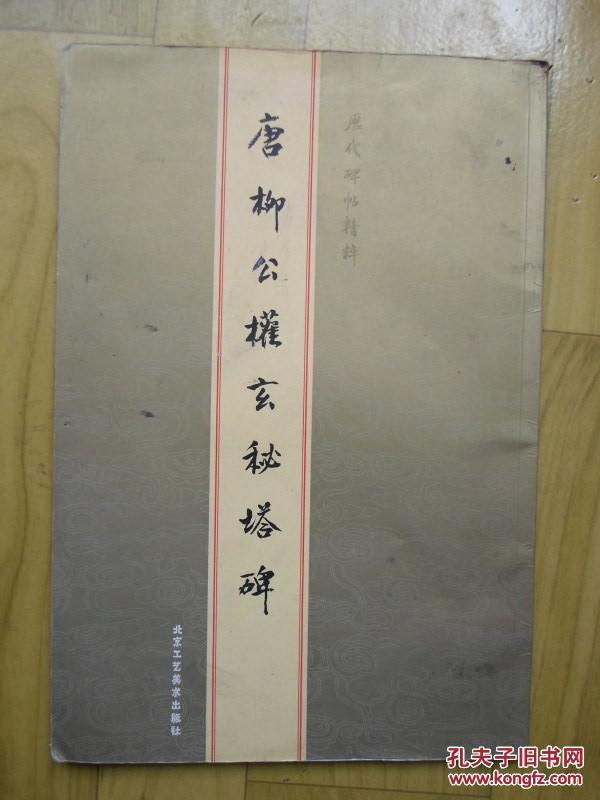 歷代碑帖精粹
唐柳公權玄秘塔碑
北京工艺美术出版社
孔夫子旧书网
www.kongfz.com